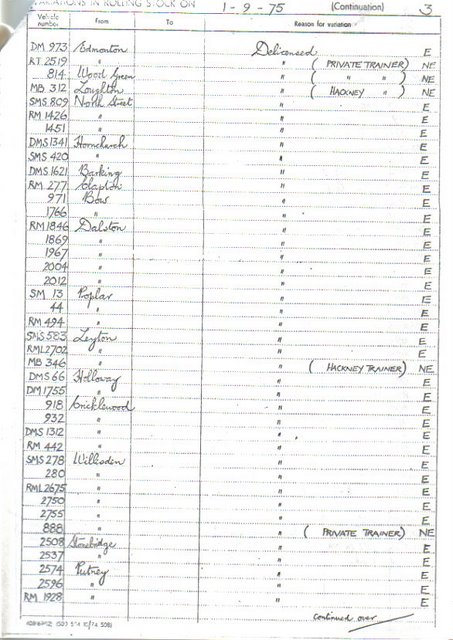 VARIATIONS IN ROLLING STOCK ON 1-9-75 (Continuation) 3
Vehicle number From To Reason for variation
DM 973 Edmonton Delicensed E
RT 2519 " " ( PRIVATE TRAINER) NE
814 Wood Green " ( " " ) NE
MB 312 Loughton " ( HACKNEY " ) NE
SMS 809 North Street " E
RM 1426 " " E
1451 " " E
DMS 1341 Hornchurch " E
SMS 420 " " E
DMS 1621 Barking " E
RM 277 Clapton " E
971 Bow " E
1766 " " E
RM 1846 Dalston " E
1869 " " E
1967 " " E
2004 " " E
2012 " " E
SM 13 Poplar " E
44 " " E
RM 494 " " E
SMS 583 Leyton " E
RML 2702 " " E
MB 346 " " ( HACKNEY TRAINER) NE
DMS 66 Holloway " E
DM 1755 " " E
918 Cricklewood " E
932 " " E
DMS 1312 " " E
RM 442 " " E
SMS 278 Willesden " E
280 " " E
RML 2675 " " E
2750 " " E
2755 " " E
888 " " ( PRIVATE TRAINER) NE
2508 Stonebridge " E
2537 " " E
2574 Putney " E
2596 " " E
RM 1928 " " E
continued over